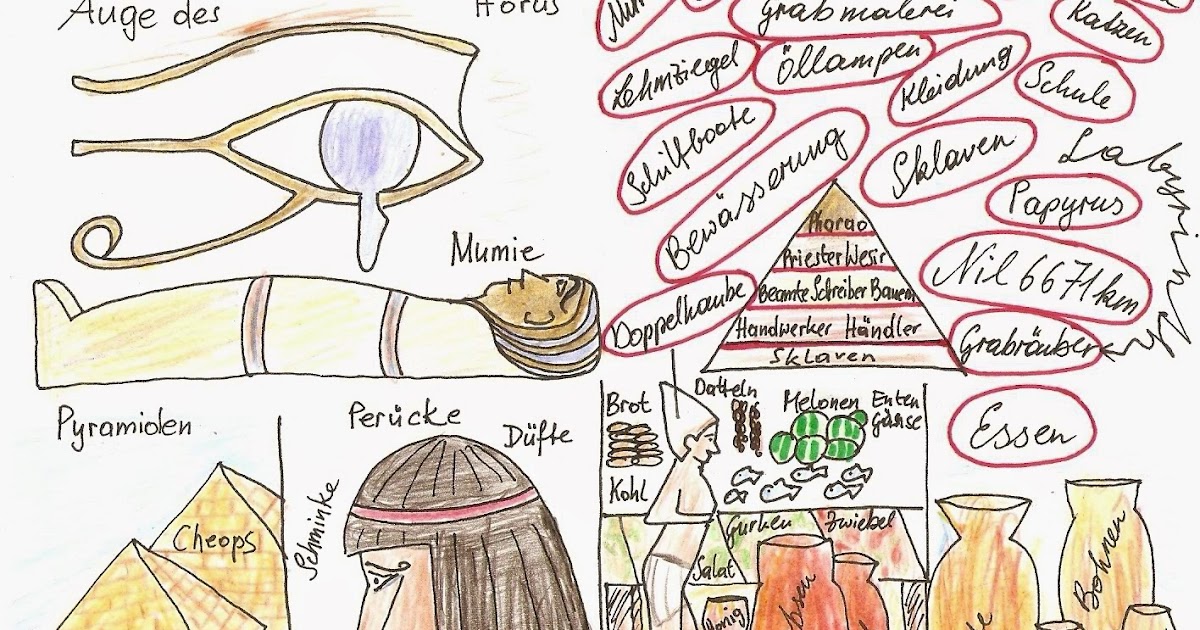 Auge des Horus
Grabmalerei
Katzen
Lehmziegel
Öllampen
Kleidung
Schule
Schilfboote
Bewässerung
Sklaven
Papyrus
Nil 6671 km
Doppelhaube
Grabräuber
Essen
Pharao
Priester Wesir
Beamte Schreiber Bauern
Handwerker Händler
Sklaven
Mumie
Pyramiden
Cheops
Perücke
Düfte
Schminke
Brot
Datteln
Melonen
Enten
Gänse
Kohl
Gurken
Zwiebel
Salat
Honig
Bohnen